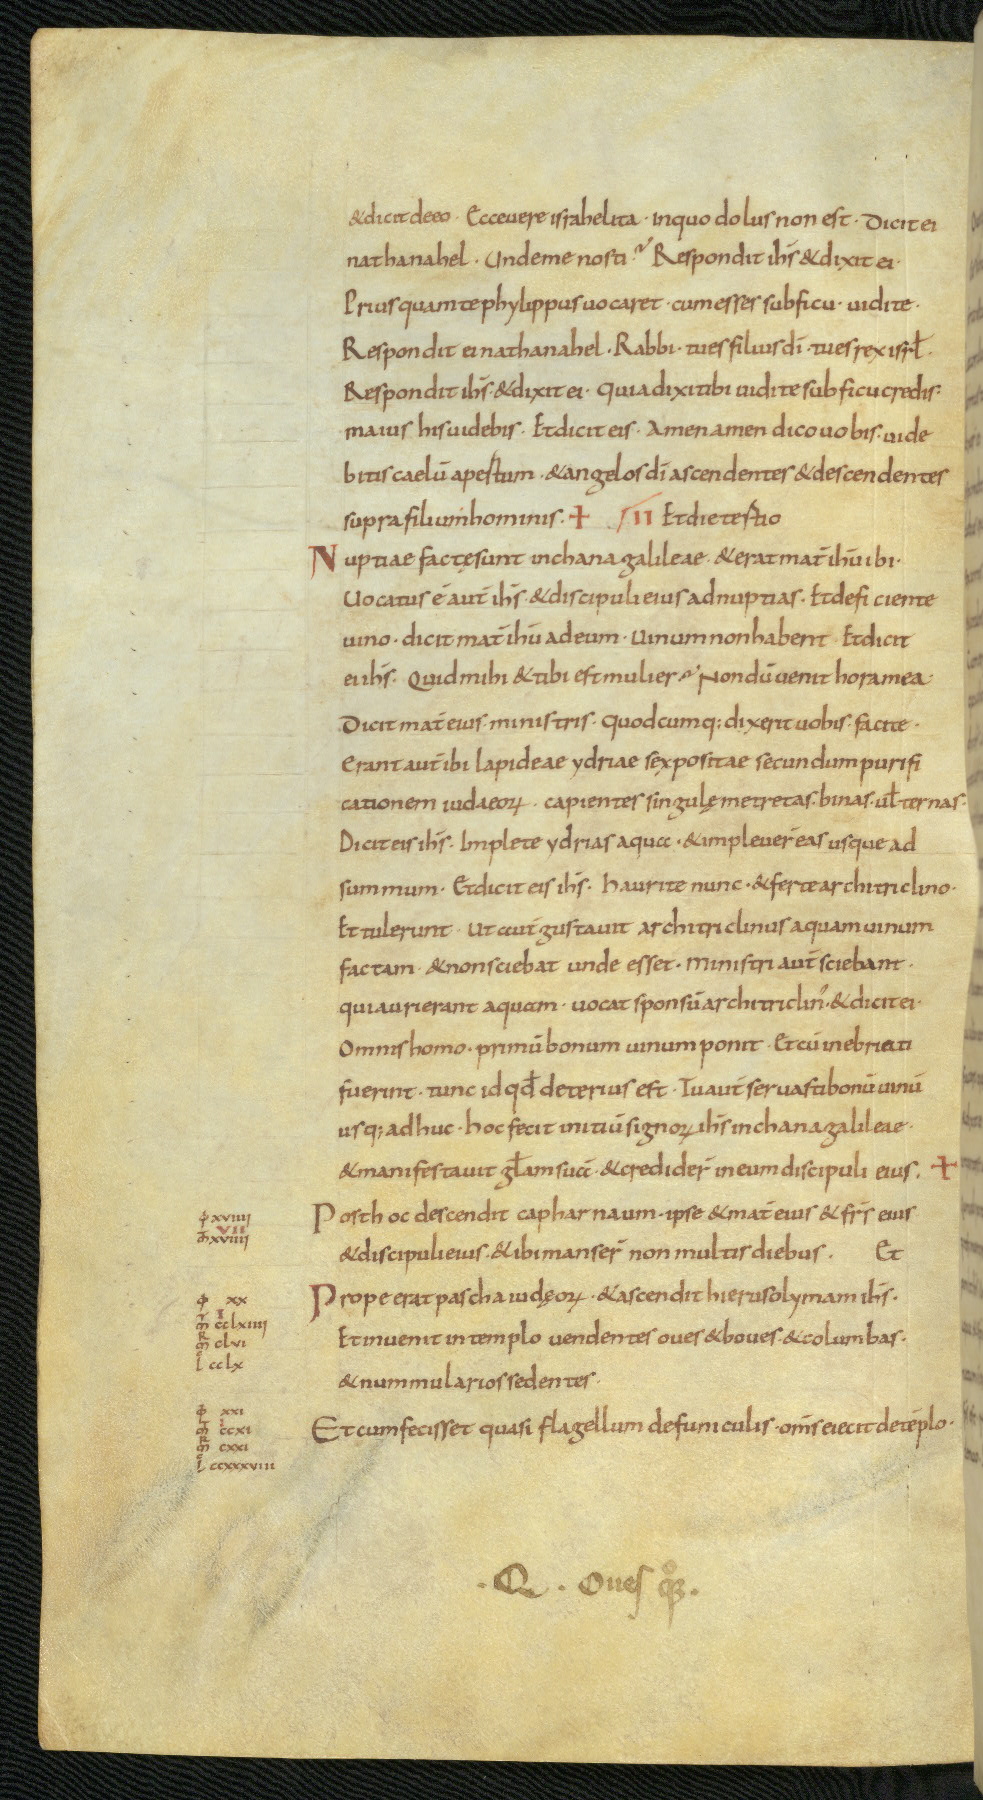 & dicit deeo · Ecce uere israhelita · in quo dolus non est · Dicit ei
nathanahel · Unde me nosti? Respondit ihs̄ & dixit ei·
Prius quam te phylippus uocaret · cum esses sub ficu · uidi te·
Respondit ei nathanahel · Rabbi · tu es filius dī · tu es rex isrł·
Respondit ihs̄ · & dixit ei · Quia dixi tibi uidi te sub ficu credis·
maius his uidebis · Et dicit eis · Amen amen dico uobis · uide
bitis caelū apertum · & angelos dī ascendentes & descendentes
supra filium hominis · + III Et die tertio
Nuptiae factę sunt in chana galileae · & erat mat̄ ihū ibi·
Uocatus ē aut̄ ihs̄ · & discipuli eius ad nuptias · Et deficiente
uino · dicit mat̄ ihū ad eum · Uinum non habent · Et dicit
ei ihs̄ · Quid mihi & tibi est mulier? Nondū uenit hora mea·
Dicit mat̄ eius ministris · Quodcumq; dixerit uobis · facite·
Erant aut̄ ibi lapideae ydriae sex positae secundum purifi
cationem iudaeoꝝ · capientes singulę metretas · binas · uł ternas·
Dicit eis ihs̄ · Implete ydrias aqua · & impleuer̄ eas usque ad
summum · Et dicit eis ihs̄ · haurite nunc · & ferte architriclino·
Et tulerunt · Ut aut̄ gustauit architriclinus aquam uinum
factam · & non sciebat unde esset · Ministri aut̄ sciebant·
qui aurierant aquam · uocat sponsū architriclin᾽ · & dicit ei·
Omnis homo · primū bonum uinum ponit · Et cū inebriati
fuerint · tunc id qd̄ deterius est · Tu aut̄ seruasti bonū uinū
usq; adhuc · hoc fecit initiū signoꝝ ihs̄ in chana galileae·
& manifestauit głam suā · & credider̄ in eum discipuli eius · +
φ xviiii
Post hoc descendit capharnaum · ipse & mat̄ eius & frs̄ eius
VII
m̄ xviiii
& discipuli eius · & ibi manser̄ non multis diebus · Et
φ xx
Prope erat pascha iudęoꝝ · & ascendit hierusolymam ihs̄·
I
m̄ cclxiiii
m̄ clvi
Et inuenit in templo uendentes oues & boues · & columbas·
l cclx
& nummularios sedentes·
φ xxi
I
m̄ ccxi
Et cum fecisset quasi flagellum de funiculis · om̄s eiecit de tēplo·
m̄ cxxi
l ccxxxviii
· Q · Oues qͦꝫ ·